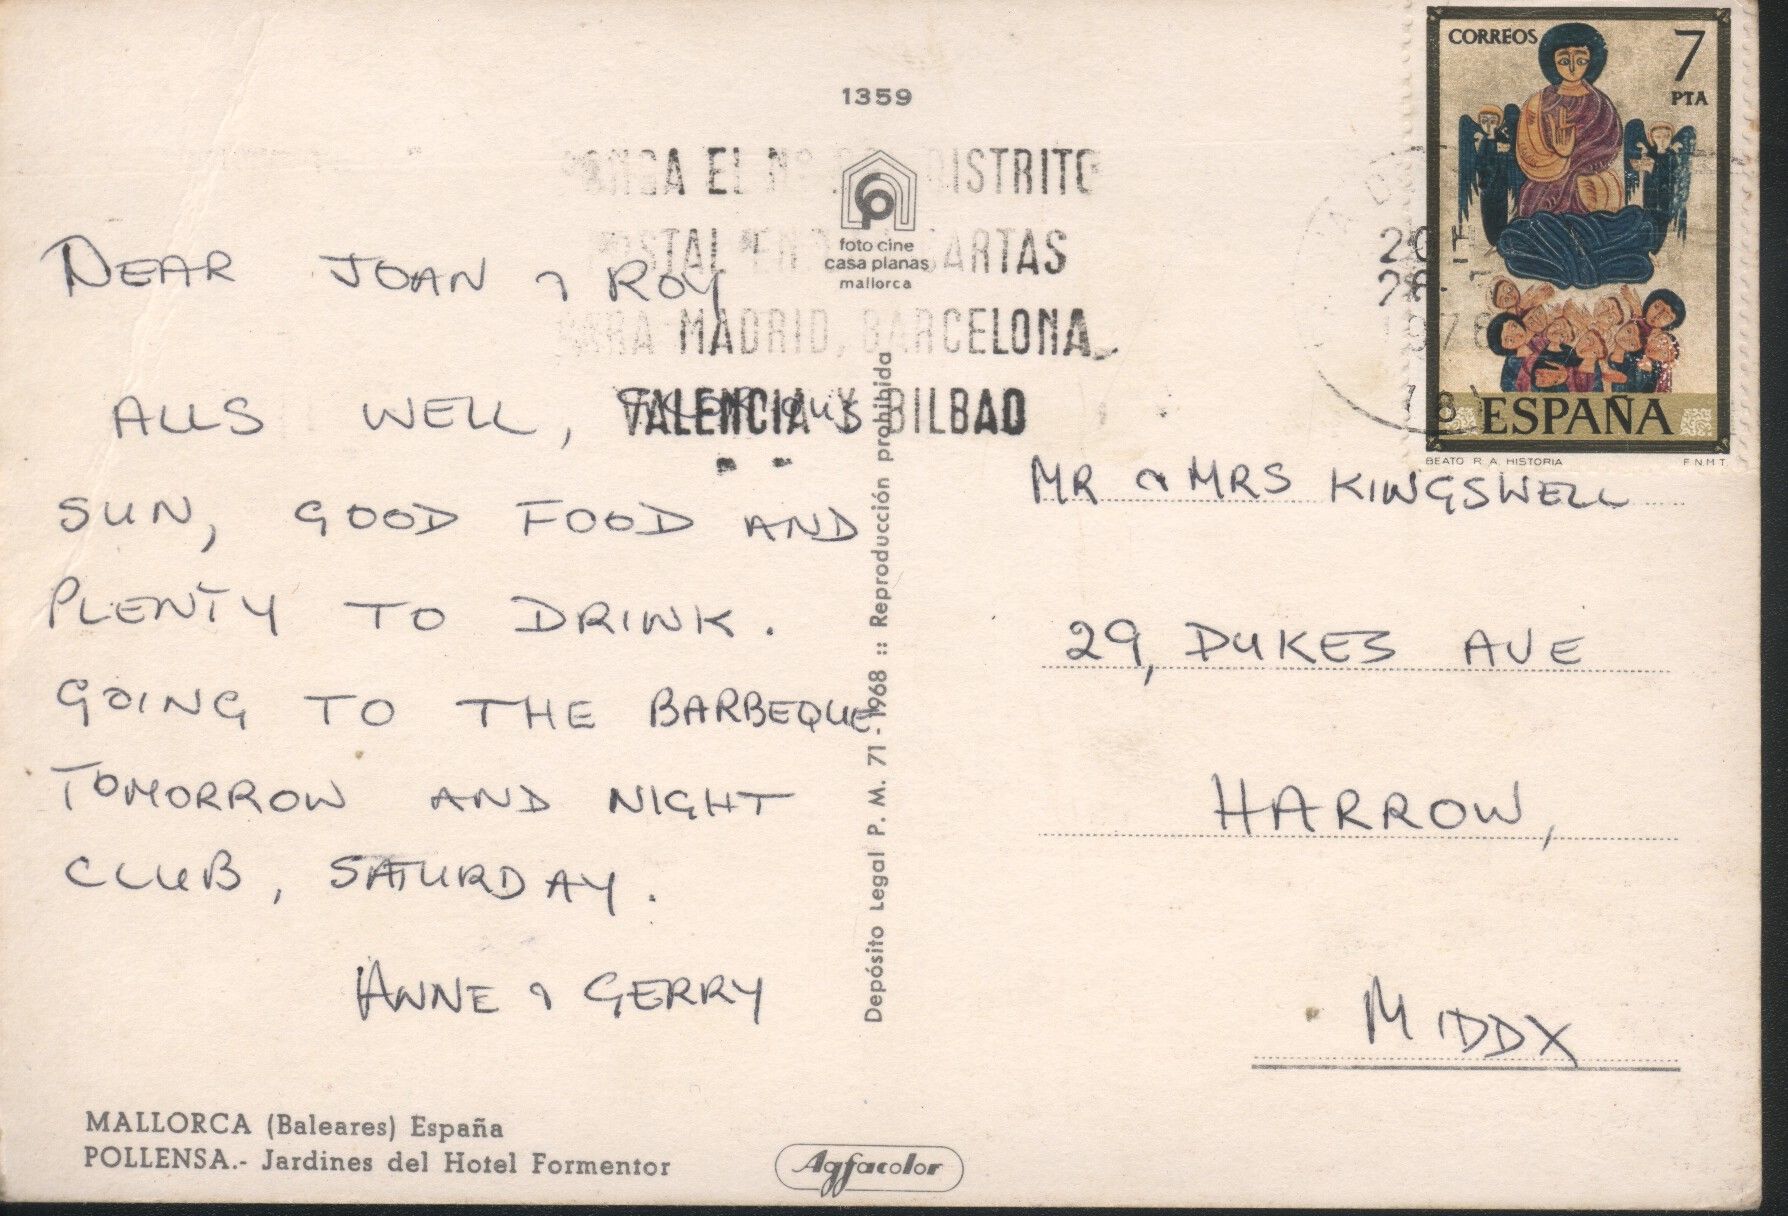 1359
foto cine
casa planas
mallorca
EL DISTRITO
CARTAS
PARA MADRID, BARCELONA,
VALENCIA Y BILBAO
CORREOS
7
PTA
1976
ESPAÑA
BEATO R. A. HISTORIA
F.N.M.T
DEAR JOAN & ROY
ALLS WELL, GLORIOUS
SUN, GOOD FOOD AND
PLENTY TO DRINK.
GOING TO THE BARBEQUE
TOMORROW AND NIGHT
CLUB, SATURDAY.
ANNE & GERRY
Depósito Legal P. M. 71 - 1968 :: Reproducción prohibida
MR & MRS KINGSWELL
29, DUKES AVE
HARROW,
MIDDX
MALLORCA (Baleares) España
POLLENSA.- Jardines del Hotel Formentor
Agfacolor